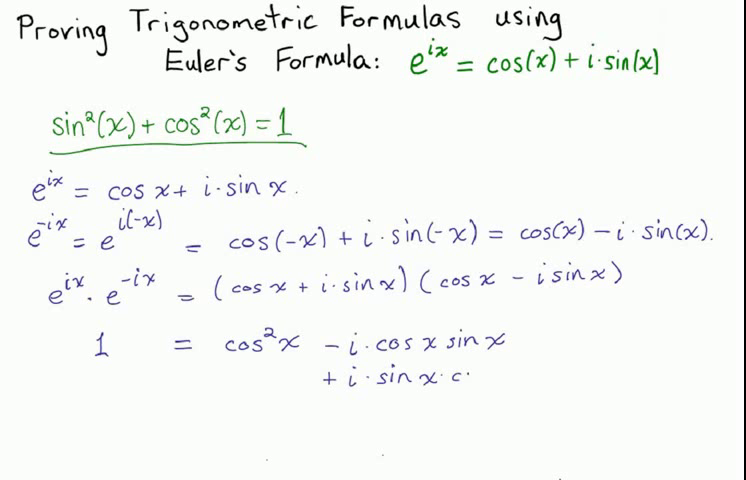 Proving Trigonometric Formulas using
Euler's Formula: e^{ix} = cos(x) + i·sin(x)
sin²(x) + cos²(x) = 1
e^{ix} = cos x + i·sin x.
e^{-ix} = e^{i(-x)} = cos(-x) + i·sin(-x) = cos(x) - i·sin(x).
e^{ix}·e^{-ix} = (cos x + i·sin x)(cos x - i sin x)
1 = cos²x - i·cos x sin x
+ i·sin x·c